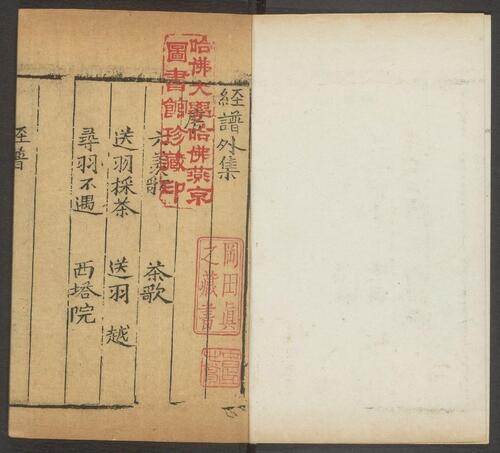 經譜外集
六羨歌 茶歌
送羽採茶 送羽 越
尋羽不遇 西塔院
經譜
哈佛大學哈佛燕京
圖書館珍藏印
岡田真
之藏書